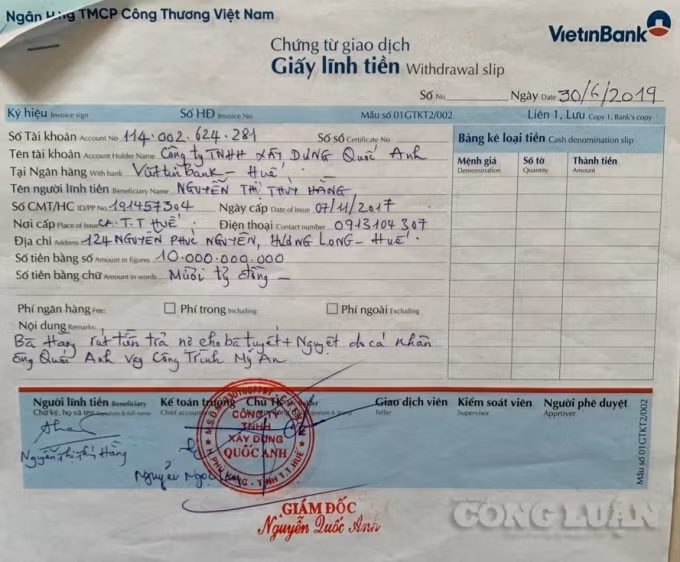 Ngân Hàng TMCP Công Thương Việt Nam
VietinBank
Chứng từ giao dịch
Giấy lĩnh tiền Withdrawal slip
Số No Ngày Date 30/6/2019
Ký hiệu Invoice sign Số HĐ Invoice No Mẫu số 01GTKT2/002 Liên 1, Lưu Copy 1, Bank's copy
Số Tài khoản Account No 114.002.624.281 Số sổ Certificate No
Tên tài khoản Account Holder Name Công ty TNHH XÂY DỰNG Quốc Anh
Tại Ngân hàng With bank Viettinbank - Huế
Tên người lĩnh tiền Beneficiary Name NGUYỄN THỊ THUÝ HẰNG
Số CMT/HC ID/PP No 191457304 Ngày cấp Date of Issue 07/11/2017
Nơi cấp Place of Issue CA.T.T HUẾ Điện thoại Contact number 0913104307
Địa chỉ Address 124 NGUYỄN PHÚC NGUYÊN, HƯƠNG LONG - Huế
Số tiền bằng số Amount in figures 10.000.000.000
Số tiền bằng chữ Amount in words Mười tỷ đồng
Bảng kê loại tiền Cash denomination slip
Mệnh giá Số tờ Thành tiền
Denomination Quantity Amount
Phí ngân hàng Fee: Phí trong Including Phí ngoài Excluding
Nội dung Remarks
Bà Hằng rút tiền trả nợ cho bà Tuyết + Nguyệt do cá nhân
ông Quốc Anh vay Công Trình Mỹ An
Người lĩnh tiền Beneficiary Kế toán trưởng Chủ TK Giao dịch viên Kiểm soát viên Người phê duyệt
Chữ ký, họ và tên Signature & full name Chief accountant Teller Supervisor Approver
CÔNG TY
TNHH
XÂY DỰNG
QUỐC ANH
TỈNH T.T.HUẾ
Nguyễn Thị Thuý Hằng
Nguyễn Ngọc
Mẫu số 01GTKT2/002
GIÁM ĐỐC
Nguyễn Quốc Anh
CÔNG LUẬN